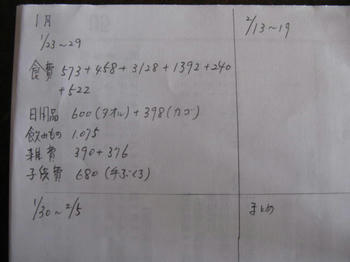 1月
1/23~29
食費 573+458+3128+1392+240
+522
日用品 600(タオル)+398(カゴ)
飲みもの 1.075
雑費 390+376
子供費 680(手ぶくろ)
1/30~2/5
2/13~19
まとめ